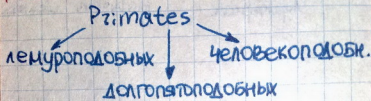 Primates
лемуроподобных
человекоподобн.
долгопятоподобных